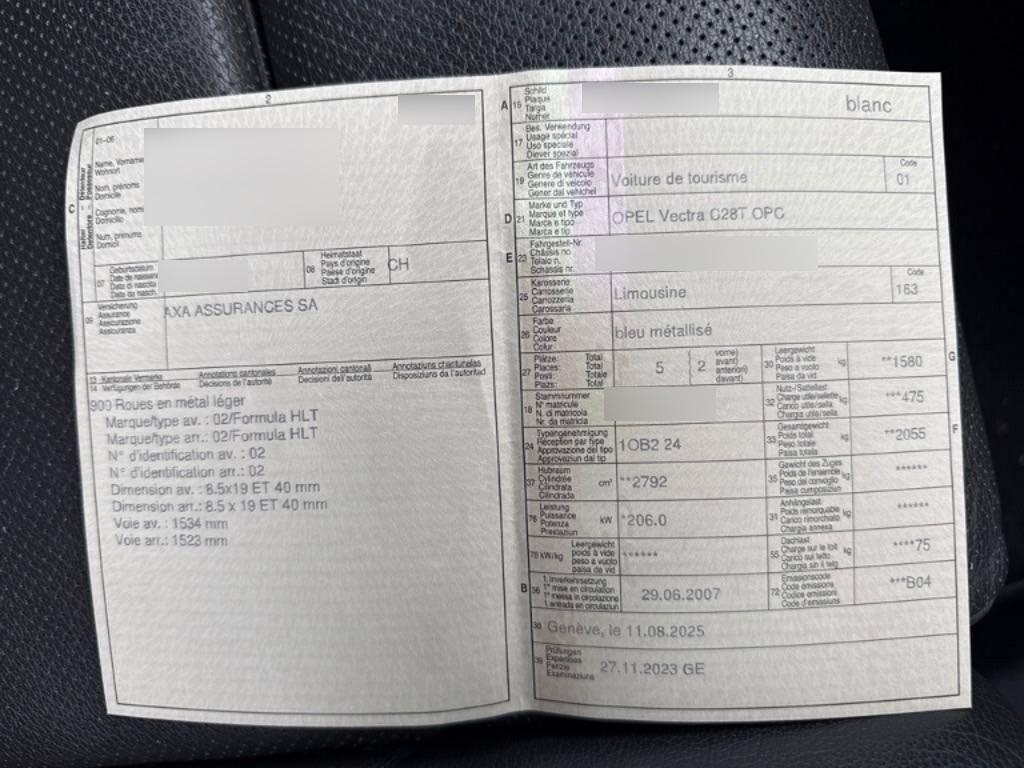 2
01-06
Name, Vorname
Wohnort
Nom, prénoms
Domicile
Cognome, nomi
Domicilio
Num, prenums
Domicil
C
Halter - Détenteur
Detentore - Possessur
07
Geburtsdatum
Date de naissance
Data di nascita
Data da nasch.
08
Heimatstaat
Pays d'origine
Paese d'origine
Stadi d'origin
CH
09
Versicherung
Assurance
Assicurazione
Assicuranza
AXA ASSURANCES SA
13 Kantonale Vermerke
14 Verfügungen der Behörde
Annotations cantonales
Décisions de l'autorité
Annotazioni cantonali
Decisioni dell'autorità
Annotaziuns chantunalas
Disposiziuns da l'autoritad
900 Roues en métal léger
Marque/type av. : 02/Formula HLT
Marque/type arr.: 02/Formula HLT
N° d'identification av. : 02
N° d'identification arr.: 02
Dimension av. : 8.5x19 ET 40 mm
Dimension arr.: 8.5 x 19 ET 40 mm
Voie av. : 1534 mm
Voie arr.: 1523 mm
3
A 15
Schild
Plaque
Targa
Numer
blanc
17
Bes. Verwendung
Usage spécial
Uso speciale
Diever spezial
19
Art des Fahrzeugs
Genre de véhicule
Genere di veicolo
Gener dal vehichel
Voiture de tourisme
Code
01
D 21
Marke und Typ
Marque et type
Marca e tipo
Marca e tip
OPEL Vectra C28T OPC
E 23
Fahrgestell-Nr.
Châssis no
Telaio n.
Schassis nr.
25
Karosserie
Carrosserie
Carrozzeria
Carossaria
Limousine
Code
163
26
Farbe
Couleur
Colore
Colur
bleu métallisé
27
Plätze: Total
Places: Total
Posti: Totale
Plazs: Total
5
2
vorne)
avant)
anteriori)
davant)
30
Leergewicht
Poids à vide
Peso a vuoto
Paisa da vid
kg
**1580
G
18
Stammnummer
N° matricule
N. di matricola
Nr. da matricla
32
Nutz-/Sattellast
Charge utile/sellette
Carico utile/sella
Chargia utila/sella
kg
***475
24
Typengenehmigung
Réception par type
Approvazione del tipo
Approvaziun dal tip
1OB2 24
33
Gesamtgewicht
Poids total
Peso totale
Paisa totala
kg
**2055
F
37
Hubraum
Cylindrée
Cilindrata
Cilindrada
cm³
**2792
35
Gewicht des Zuges
Poids de l'ensemble
Peso del convoglio
Paisa cumposiziun
kg
******
76
Leistung
Puissance
Potenza
Prestaziun
kW
*206.0
31
Anhängelast
Poids remorquable
Carico rimorchiato
Chargia annexa
kg
******
78 kW/kg
Leergewicht
poids à vide
peso a vuoto
paisa da vid
******
55
Dachlast
Charge sur le toit
Carico sul tetto
Chargia sin il tetg
kg
****75
B 36
1. Inverkehrsetzung
1re mise en circulation
1a messa in circolazione
1. entrada en circulaziun
29.06.2007
72
Emissionscode
Code émissions
Codice emissioni
Code d'emissiuns
***B04
38
Genève, le 11.08.2025
39
Prüfungen
Expertises
Perizie
Examinaziuns
27.11.2023 GE